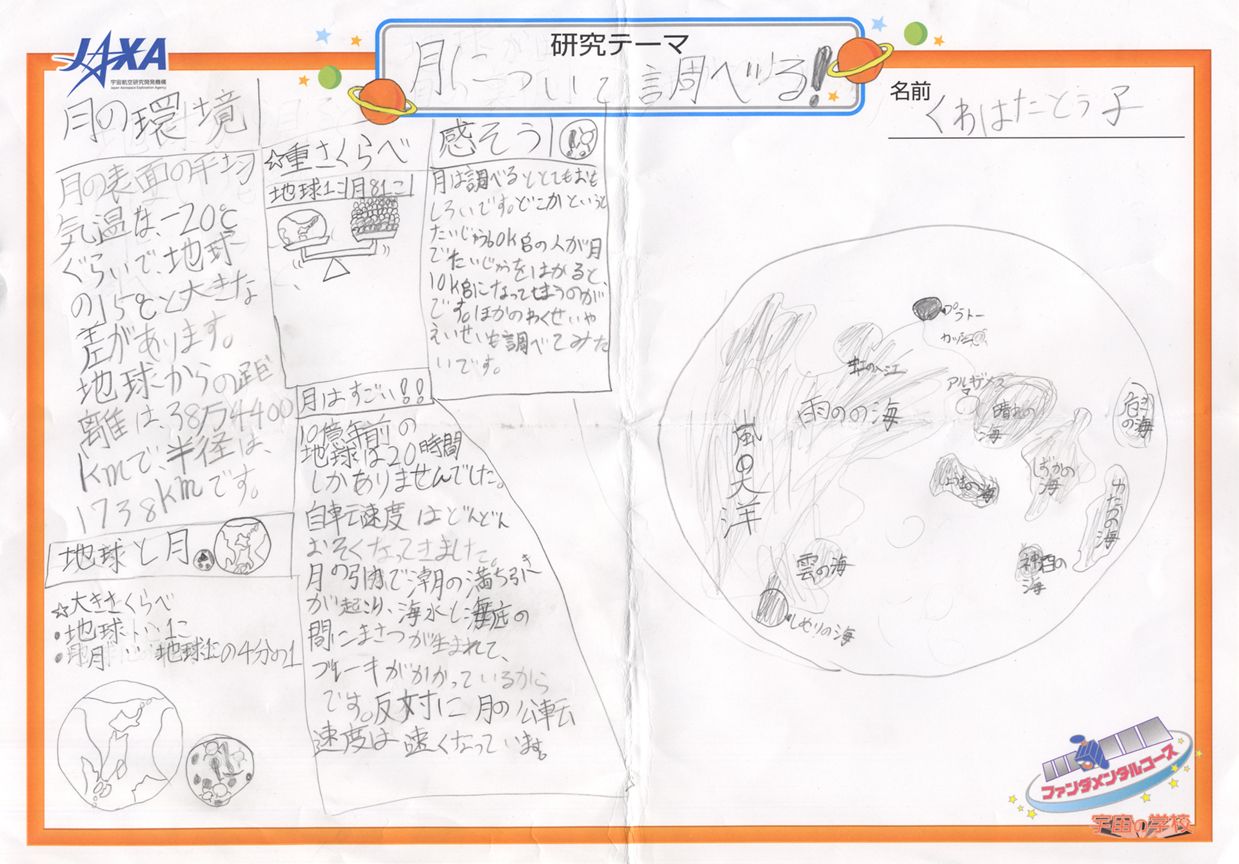 JAXA
宇宙航空研究開発機構
Japan Aerospace Exploration Agency
研究テーマ
月について調べる!
名前
くわはたとう子
月の環境
月の表面の平均
気温は、-20℃
ぐらいで、地球
の15℃と大きな
差があります。
地球からの距
離は、38万4400
kmで、半径は、
1738kmです。
☆重さくらべ
地球1こ 月81こ
感そう
月は調べるととてもおも
しろいです。どこかというと
たいじゅう60kgの人が月
でたいじゅうをはかると、
10kgになってしまうのが
です。ほかのわくせいや
えいせいも調べてみた
いです。
月はすごい!!
10億年前の
地球は20時間
しかありませんでした。
自転速度はどんどん
おそくなってきました。
月の引力で潮の満ち引き
が起こり、海水と海底の
間にまさつが生まれて、
ブレーキがかかっているから
です。反対に月の公転
速度は速くなっています。
地球と月
☆大きさくらべ
・地球…1こ
・月…地球1この4分の1
プラトー
虹の入江
アルキメデス
雨のの海
晴れの海
危の海
嵐の大洋
しずかの海
ゆたかの海
雲の海
神酒の海
しめりの海
ファンダメンタルコース
宇宙の学校